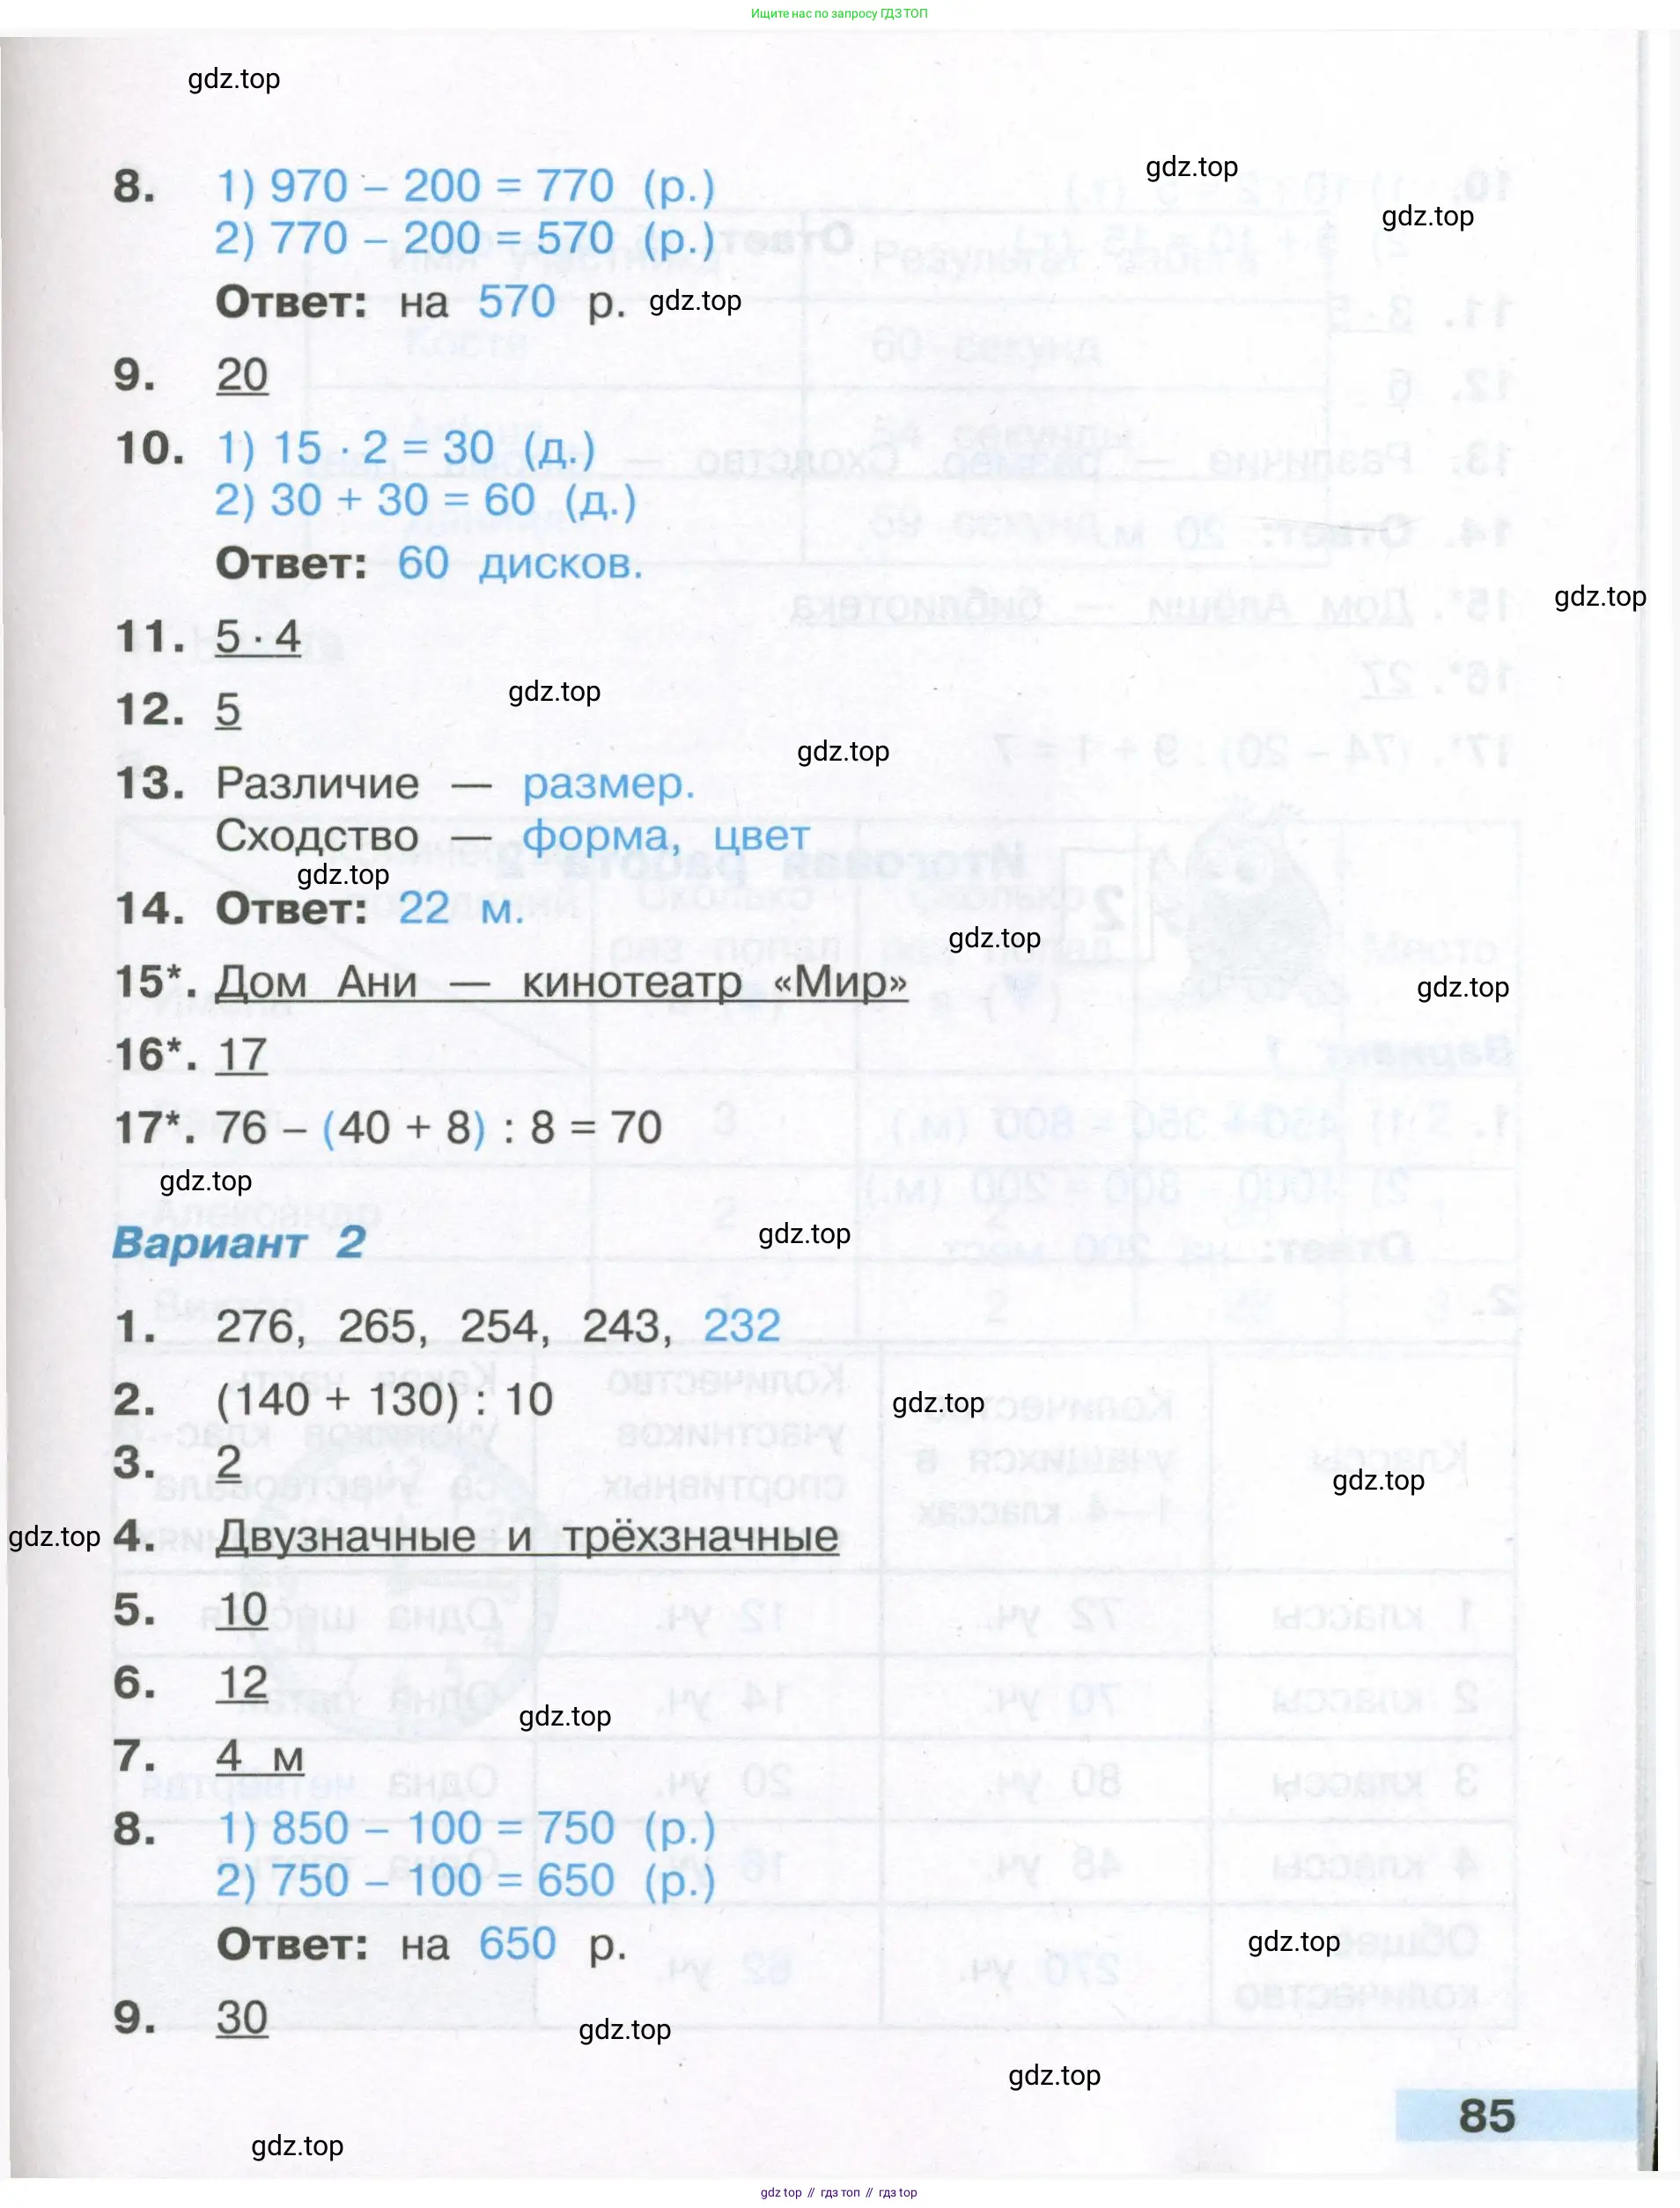 Ищите нас по запросу ГДЗ ТОП
gdz.top
gdz.top
gdz.top
8. 1) 970 – 200 = 770 (р.)
2) 770 – 200 = 570 (р.)
Ответ: на 570 р.
gdz.top
9. 20
10. 1) 15 · 2 = 30 (д.)
2) 30 + 30 = 60 (д.)
Ответ: 60 дисков.
gdz.top
11. 5 · 4
gdz.top
12. 5
gdz.top
13. Различие — размер.
Сходство — форма, цвет
gdz.top
14. Ответ: 22 м.
gdz.top
15*. Дом Ани — кинотеатр «Мир»
gdz.top
16*. 17
17*. 76 – (40 + 8) : 8 = 70
gdz.top
Вариант 2
gdz.top
1. 276, 265, 254, 243, 232
2. (140 + 130) : 10
gdz.top
3. 2
gdz.top
gdz.top
4. Двузначные и трёхзначные
5. 10
6. 12
gdz.top
7. 4 м
8. 1) 850 – 100 = 750 (р.)
2) 750 – 100 = 650 (р.)
Ответ: на 650 р.
gdz.top
9. 30
gdz.top
gdz.top
85
gdz.top
gdz top // гдз топ // гдз top